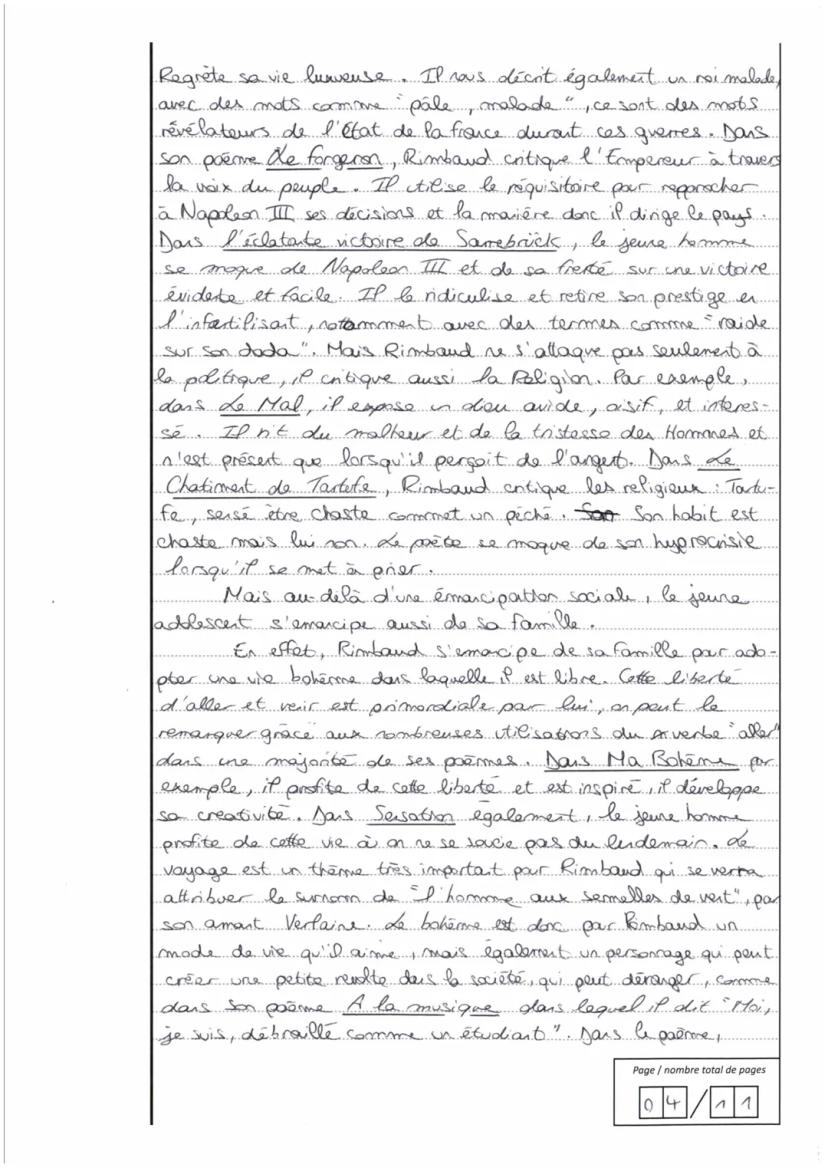 Regrète sa vie luxueuse. Il nous décrit également un roi malade,
avec des mots comme "pâle, malade", ce sont des mots
révélateurs de l'état de la france durant ces guerres. Dans
son poème Le forgeron, Rimbaud critique l'Empereur à travers
la voix du peuple. Il utilise le réquisitoire pour repprocher
à Napoleon III ses décisions et la manière donc il dirige le pays.
Dans l'éclatante victoire de Sarrebrück, le jeune homme
se moque de Napoleon III et de sa fierté sur une victoire
évidente et facile. Il le ridiculise et retire son prestige en
l'infantilisant, notamment avec des termes comme "raide
sur son dada". Mais Rimbaud ne s'attaque pas seulement à
la politique, il critique aussi la Religion. Par exemple,
dans Le Mal, il expose un dieu avide, oisif, et interes-
sé. Il rit du malheur et de la tristesse des Hommes et
n'est présent que lorsqu'il perçoit de l'argent. Dans Le
Chatiment de Tartufe, Rimbaud critique les religieux : Tartu-
fe, sensé être chaste commet un péché. Son habit est
chaste mais lui non. Le poète se moque de son hyprocrisie
lorsqu'il se met à prier.
Mais au-delà d'une émancipation sociale, le jeune
adolescent s'emancipe aussi de sa famille.
En effet, Rimbaud s'emancipe de sa famille pour ado-
pter une vie bohème dans laquelle il est libre. Cette liberté
d'aller et venir est primordiale par lui, on peut le
remarquer grâce aux nombreuses utilisations du verbe "aller"
dans une majorité de ses poèmes. Dans Ma Bohème par
exemple, il profite de cette liberté et est inspiré, il développe
sa creativité. Dans Sensation également, le jeune homme
profite de cette vie à on ne se soucie pas du lendemain. Le
voyage est un thème très important pour Rimbaud qui se verra
attribuer le surnom de "l'homme aux semelles de vent", par
son amant Verlaine. La bohème est donc pour Rimbaud un
mode de vie qu'il aime, mais également un personnage qui peut
créer une petite revolte dans la société, qui peut déranger, comme
dans son poème A la musique dans lequel il dit "Moi,
je suis, débraillé comme un étudiant". Dans le poème,
Page / nombre total de pages
04/11